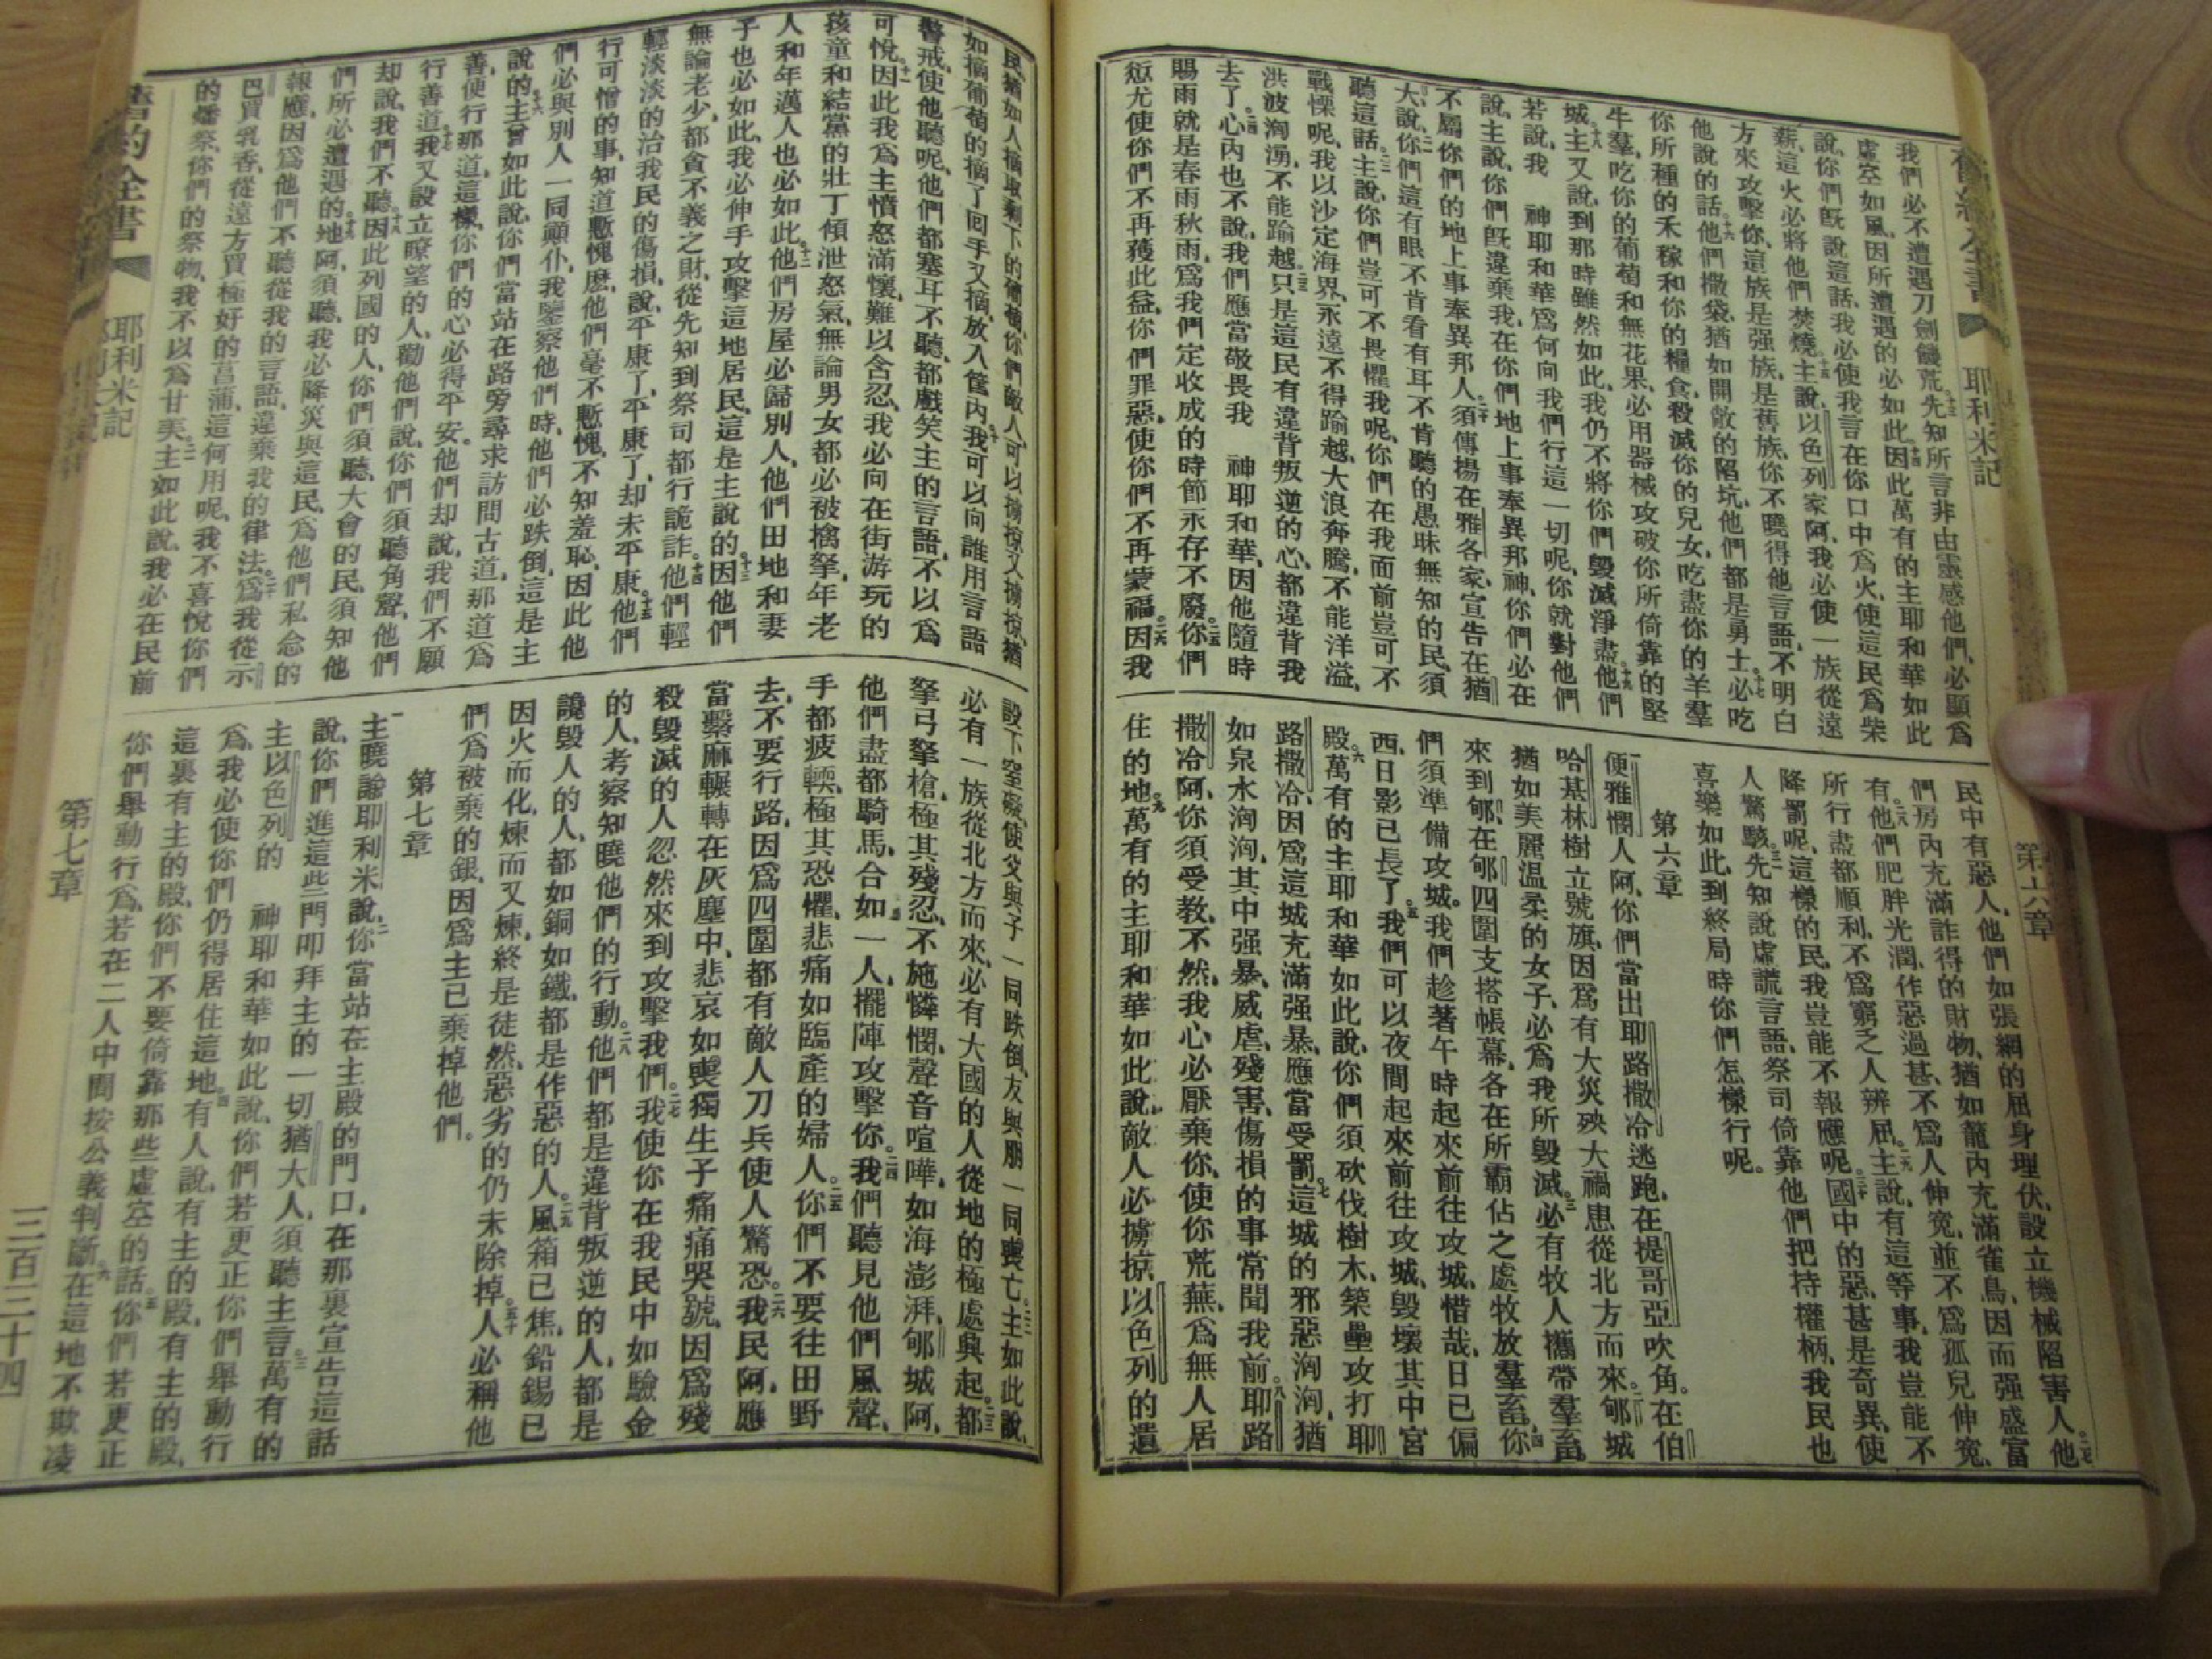 耶利米記
第六章
我們必不遭遇刀劍饑荒、先知所言非由靈感他們、必顯爲
虛空如風、因所遭遇的必如此、因此萬有的主耶和華如此
說、你們旣說這話、我必使我言在你口中爲火、使這民爲柴
薪、這火必將他們焚燒、主說、以色列家阿、我必使一族從遠
方來攻擊你、這族是强族、是舊族、你不曉得他言語、不明白
他說的話、他們撒袋猶如開敞的陷坑、他們都是勇士、必吃
你所種的禾稼和你的糧食、殺滅你的兒女、吃盡你的羊羣
牛羣、吃你的葡萄和無花果、必用器械攻破你所倚靠的堅
城、主又說、到那時雖然如此、我仍不將你們毀滅淨盡、他們
若說、我　神耶和華爲何向我們行這一切呢、你就對他們
說、主說、你們旣違棄我、在你們地上事奉異邦神、你們必在
不屬你們的地上事奉異邦人、須傳揚在雅各家、宣告在猶
大、說、你們這有眼不肯看有耳不肯聽的愚昧無知的民、須
聽這話、主說、你們豈可不畏懼我呢、你們在我面前豈可不
戰慄呢、我以沙定海界、永遠不得踰越、大浪奔騰、不能洋溢、
洪波洶湧、不能踰越、只是這民有違背叛逆的心、都違背我
去了、心內也不說、我們應當敬畏我　神耶和華、因他隨時
賜雨就是春雨秋雨、爲我們定收成的時節、永存不廢、你們
愆尤使你們不再獲此益、你們罪惡、使你們不再蒙福、因我
民中有惡人、他們如張網的屈身埋伏、設立機械陷害人、他
們房內充滿詐得的財物、猶如籠內充滿雀鳥、因而强盛富
有、他們肥胖光潤、作惡過甚、不爲人伸寃、並不爲孤兒伸寃、
所行盡都順利、不爲窮乏人辨屈、主說、有這等事、我豈能不
降罰呢、這樣的民、我豈能不報應呢、國中的惡、甚是奇異、使
人驚駭、先知說虛謊言語、祭司倚靠他們把持權柄、我民也
喜樂如此、到終局時你們怎樣行呢。
第六章
便雅憫人阿、你們當出耶路撒冷逃跑、在提哥亞吹角。在伯
哈基林樹立號旗、因爲有大災殃大禍患從北方而來、郇城
猶如美麗温柔的女子、必爲我所毀滅、必有牧人攜帶羣畜、
來到郇、在郇四圍支搭帳幕、各在所霸佔之處牧放羣畜、你
們須準備攻城、我們趁著午時起來前往攻城、惜哉、日已偏
西、日影已長了、我們可以夜間起來前往攻城、毀壞其中宮
殿、萬有的主耶和華如此說、你們須砍伐樹木、築壘攻打耶
路撒冷、因爲這城充滿强暴、應當受罰、這城的邪惡洶洶、猶
如泉水洶洶、其中强暴、威虐、殘害、傷損的事常聞我前、耶路
撒冷阿、你須受教、不然、我心必厭棄你、使你荒蕪、爲無人居
住的地、萬有的主耶和華如此說、敵人必擄掠以色列的遺
耶利米記
第七章
三百三十四
民、猶如人摘取剩下的葡萄、你們敵人、可以擄掠又擄掠、猶
如摘葡萄的摘了回手又摘、放入筐內、我可以向誰用言語
警戒、使他聽呢、他們都塞耳不聽、都戲笑主的言語、不以爲
可悅、因此我爲主憤怒滿懷、難以含忍、我必向在街游玩的
孩童和結黨的壯丁傾泄怒氣、無論男女都必被擒拏、年老
人和年邁人也必如此、他們房屋必歸別人、他們田地和妻
子也必如此、我必伸手攻擊這地居民、這是主說的、因他們
無論老少、都貪不義之財、從先知到祭司都行詭詐、他們輕
輕淡淡的治我民的傷損、說、平康了、平康了、却未平康、他們
行可憎的事、知道慙愧麽、他們毫不慙愧、不知羞恥、因此他
們必與別人一同顚仆、我鑒察他們時、他們必跌倒、這是主
說的、主曾如此說、你們當站在路旁尋求訪問古道、那道爲
善、便行那道、這樣、你們的心必得平安、他們却說、我們不願
行善道、我又設立瞭望的人、勸他們說、你們須聽角聲、他們
却說、我們不聽、因此列國的人、你們須聽、大會的民、須知他
們所必遭遇的、地阿、須聽、我必降災與這民、爲他們私念的
報應、因爲他們不聽從我的言語、違棄我的律法、爲我從示
巴買乳香、從遠方買極好的菖蒲、這何用呢、我不喜悅你們
的燔祭、你們的祭物、我不以爲甘美、主如此說、我必在民前
設下窒礙、使父與子一同跌倒、友與朋一同喪亡、主如此說、
必有一族從北方而來、必有大國的人從地的極處興起、都
拏弓拏槍、極其殘忍、不施憐憫、聲音喧嘩、如海澎湃、郇城阿、
他們盡都騎馬、合如一人、擺陣攻擊你、我們聽見他們風聲、
手都疲輭、極其恐懼、悲痛如臨產的婦人、你們不要往田野
去、不要行路、因爲四圍都有敵人刀兵使人驚恐、我民阿、應
當繫麻輾轉在灰塵中、悲哀如喪獨生子痛痛哭號、因爲殘
殺毀滅的人忽然來到攻擊我們、我使你在我民中如驗金
的人、考察知曉他們的行動、他們都是違背叛逆的人、都是
讒毀人的人、都如銅如鐵、都是作惡的人、風箱已焦、鉛錫已
因火而化、煉而又煉、終是徒然、惡劣的仍未除掉、人必稱他
們爲被棄的銀、因爲主已棄掉他們。
第七章
主曉諭耶利米說、你當站在主殿的門口、在那裏宣告這話
說、你們進這些門叩拜主的一切猶大人、須聽主言、萬有的
主以色列的　神耶和華如此說、你們若更正你們舉動行
爲、我必使你們仍得居住這地、有人說、有主的殿、有主的殿、
這裏有主的殿、你們不要倚靠那些虛空的話、你們若更正
你們舉動行爲、若在二人中間按公義判斷、在這地不欺凌